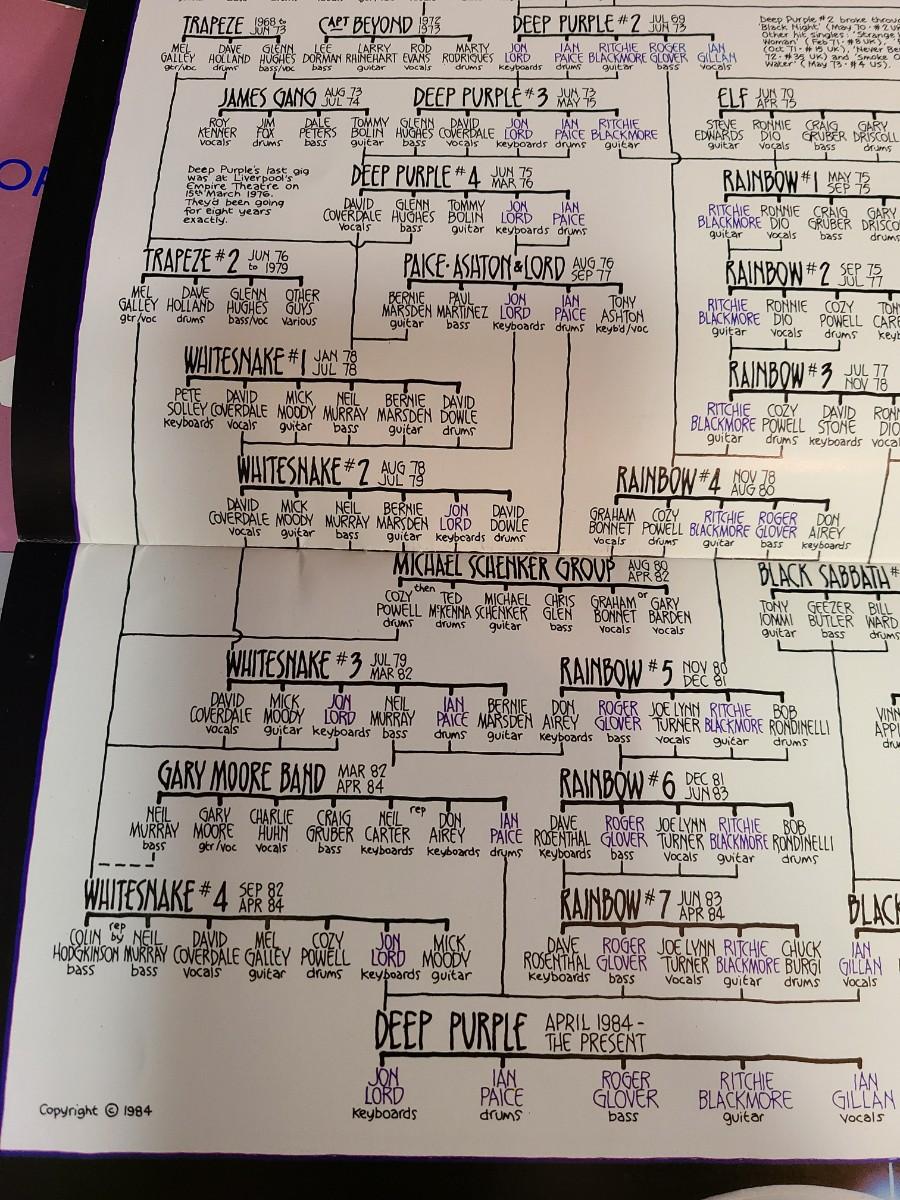 TRAPEZE 1968 to JUN 73
MEL GALLEY gtr/voc DAVE HOLLAND drums GLENN HUGHES bass/voc
CAPT BEYOND 1972 1973
LEE DORMAN bass LARRY RHINEHART guitar ROD EVANS vocals MARTY RODRIGUES drums
DEEP PURPLE #2 JUL 69 JUN 73
JON LORD keyboards IAN PAICE drums RITCHIE BLACKMORE guitar ROGER GLOVER bass IAN GILLAN vocals
Deep Purple #2 broke throu
'Black Night' (May 70 · #2 U
Other hit singles: 'Strange
Woman' (Feb 71 · #8 UK),
(Oct 71 · #15 UK), 'Never Be
72 · #35 UK) and 'Smoke O
Water' (May 73 · #4 US).
JAMES GANG AUG 73 JUL 74
ROY KENNER vocals JIM FOX drums DALE PETERS bass TOMMY BOLIN guitar
DEEP PURPLE #3 JUN 73 MAY 75
GLENN HUGHES bass DAVID COVERDALE vocals JON LORD keyboards IAN PAICE drums RITCHIE BLACKMORE guitar
ELF JUN 70 APR 75
STEVE EDWARDS guitar RONNIE DIO vocals CRAIG GRUBER bass GARY DRISCOLL drums
Deep Purple's last gig
was at Liverpool's
Empire Theatre on
15th March 1976.
They'd been going
for eight years
exactly.
DEEP PURPLE #4 JUN 75 MAR 76
DAVID COVERDALE vocals GLENN HUGHES bass TOMMY BOLIN guitar JON LORD keyboards IAN PAICE drums
RAINBOW #1 MAY 75 SEP 75
RITCHIE BLACKMORE guitar RONNIE DIO vocals CRAIG GRUBER bass GARY DRISCO drums
TRAPEZE #2 JUN 76 to 1979
MEL GALLEY gtr/voc DAVE HOLLAND drums GLENN HUGHES bass/voc OTHER GUYS various
PAICE·ASHTON & LORD AUG 76 SEP 77
BERNIE MARSDEN guitar PAUL MARTINEZ bass JON LORD keyboards IAN PAICE drums TONY ASHTON keyb'd/voc
RAINBOW #2 SEP 75 JUL 77
RITCHIE BLACKMORE guitar RONNIE DIO vocals COZY POWELL drums TON CARE keyb
WHITESNAKE #1 JAN 78 JUL 78
PETE SOLLEY keyboards DAVID COVERDALE vocals MICK MOODY guitar NEIL MURRAY bass BERNIE MARSDEN guitar DAVID DOWLE drums
RAINBOW #3 JUL 77 NOV 78
RITCHIE BLACKMORE guitar COZY POWELL drums DAVID STONE keyboards RONN DIO vocal
WHITESNAKE #2 AUG 78 JUL 79
DAVID COVERDALE vocals MICK MOODY guitar NEIL MURRAY bass BERNIE MARSDEN guitar JON LORD keyboards DAVID DOWLE drums
RAINBOW #4 NOV 78 AUG 80
GRAHAM BONNET vocals COZY POWELL drums RITCHIE BLACKMORE guitar ROGER GLOVER bass DON AIREY keyboards
MICHAEL SCHENKER GROUP AUG 80 APR 82
COZY POWELL drums then TED McKENNA drums MICHAEL SCHENKER guitar CHRIS GLEN bass GRAHAM BONNET vocals or GARY BARDEN vocals
BLACK SABBATH #
TONY IOMMI guitar GEEZER BUTLER bass BILL WARD drums
WHITESNAKE #3 JUL 79 MAR 82
DAVID COVERDALE vocals MICK MOODY guitar JON LORD keyboards NEIL MURRAY bass IAN PAICE drums BERNIE MARSDEN guitar
RAINBOW #5 NOV 80 DEC 81
DON AIREY keyboards ROGER GLOVER bass JOE LYNN TURNER vocals RITCHIE BLACKMORE guitar BOB RONDINELLI drums
VINN APPI dru
GARY MOORE BAND MAR 82 APR 84
NEIL MURRAY bass GARY MOORE gtr/voc CHARLIE HUHN vocals CRAIG GRUBER bass NEIL CARTER keyboards rep DON AIREY keyboards IAN PAICE drums
RAINBOW #6 DEC 81 JUN 83
DAVE ROSENTHAL keyboards ROGER GLOVER bass JOE LYNN TURNER vocals RITCHIE BLACKMORE guitar BOB RONDINELLI drums
WHITESNAKE #4 SEP 82 APR 84
COLIN HODGKINSON bass rep by NEIL MURRAY bass DAVID COVERDALE vocals MEL GALLEY guitar COZY POWELL drums JON LORD keyboards MICK MOODY guitar
RAINBOW #7 JUN 83 APR 84
DAVE ROSENTHAL keyboards ROGER GLOVER bass JOE LYNN TURNER vocals RITCHIE BLACKMORE guitar CHUCK BURGI drums
BLACK
IAN GILLAN vocals
DEEP PURPLE APRIL 1984 - THE PRESENT
JON LORD keyboards IAN PAICE drums ROGER GLOVER bass RITCHIE BLACKMORE guitar IAN GILLAN vocals
Copyright © 1984